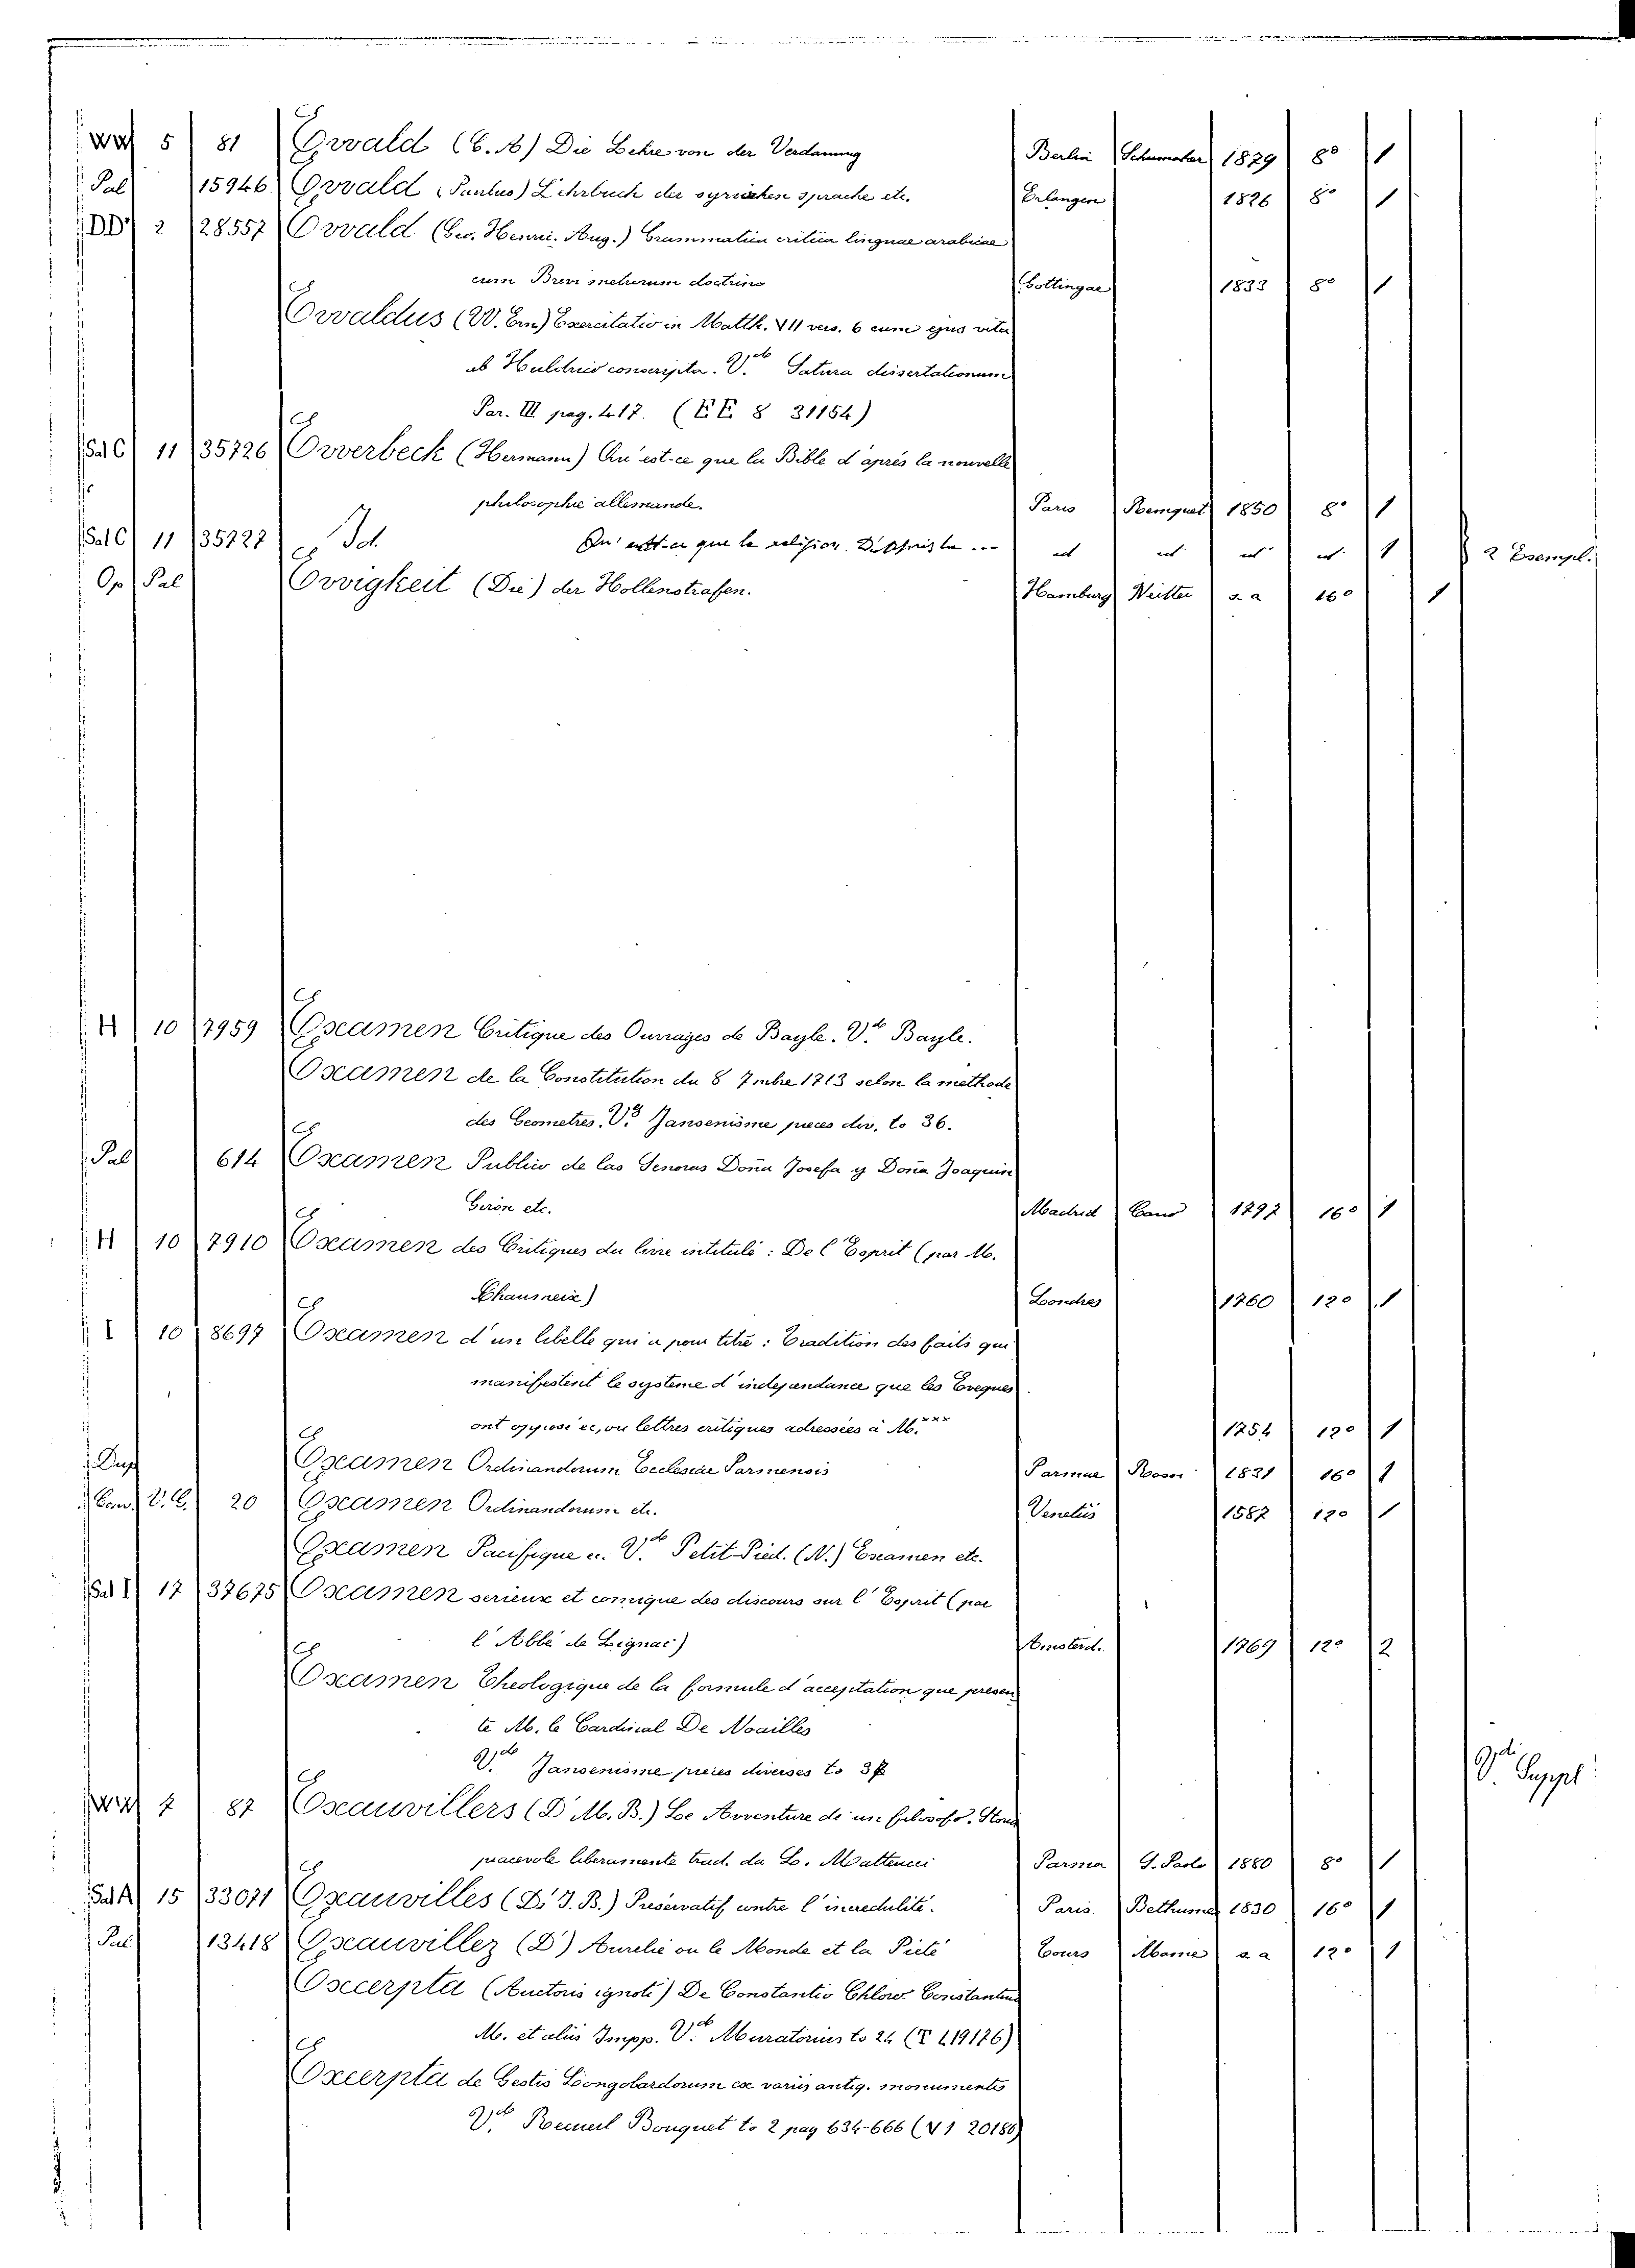 WW 5 81 Ewald (C. A) Die Lehre von der Verdauung Berlin Schumaker 1829 8° 1
Pal 15946 Ewald (Paulus) Lehrbuch der syrischen sprache etc. Erlangen 1826 8° 1
DD 2 28557 Ewald (Geo. Henri. Aug.) Grammatica critica linguae arabicae
cum Brevi metrorum doctrina Gottingae 1833 8° 1
Ewaldus (W. Ern) Exercitatio in Matth. VII vers. 6 cum ejus vita
ab Huldrico conscripta. V. Satura dissertationum
Par. III pag. 417. (EE 8 31154)
Sal C 11 35726 Ewerbeck (Hermann) Qu'est-ce que la Bible d'aprés la nouvelle
philosophie allemande. Paris Remquet 1850 8° 1
Sal C 11 35727 Id. Qu'est-ce que la religion. D'après la ... id id id id. 1 2 Esempl.
Op Pal Ewigkeit (Die) der Hollenstrafen. Hamburg a a 16° 1
H 10 7959 Examen Critique des Ouvrages de Bayle. V. Bayle.
Examen de la Constitution du 8 7mbre 1713 selon la methode
des Geometres. V. Jansenisme pieces div. to 36.
Pal 614 Examen Publico de las Senoras Doña Josefa y Doña Joaquin
Giron etc. Madrid Cano 1797 16° 1
H 10 7910 Examen des Critiques du livre intitulé: De l'Esprit (par M.
Londres 1760 12° 1
I 10 8697 Examen d'un libelle qui a pour titre: Tradition des faits qui
manifestent le systeme d'independance que les Eveques
ont opposé ec, ou lettres critiques adressées à M.xxx 1754 12° 1
Dup Examen Ordinandorum Ecclesiae Parmensis Parmae Rossi 1831 16° 1
Con. V. C. 20 Examen Ordinandorum etc. Venetiis 1587 12° 1
Examen Pacifique ec. V. Petit-Pied. (N.) Examen etc.
Sal I 17 37675 Examen serieux et comique des discours sur l'Esprit (par
l'Abbé de Lignac) Amsterd. 1769 12° 2
Examen Theologique de la formule d'acceptation que presen
te M. le Cardinal De Noailles
V. Jansenisme pieces diverses to V. Suppl
WW 7 87 Exauvillers (D' M. B.) Le Avventure di un filosofo. Storia
piacevole liberamente trad. da L. Parma G. Paolo 1880 8° 1
Sal A 15 33071 Exauvilles (D. J. B.) Préservatif contre l'incredulité. Paris Bethune 1830 16° 1
Pal 13418 Exauvillez (D') Aurelie ou le Monde et la Pieté Tours Mame a a 12° 1
Excerpta (Auctoris ignoti) De Constantio Chloro Constantino
M. et aliis Impp. V. Muratorius to 24 (T 1 19176)
Excerpta de Gestis Longobardorum ex variis antiq. monumentis
V. Recueil Bouquet to 2 pag 634-666 (V 1 20186)